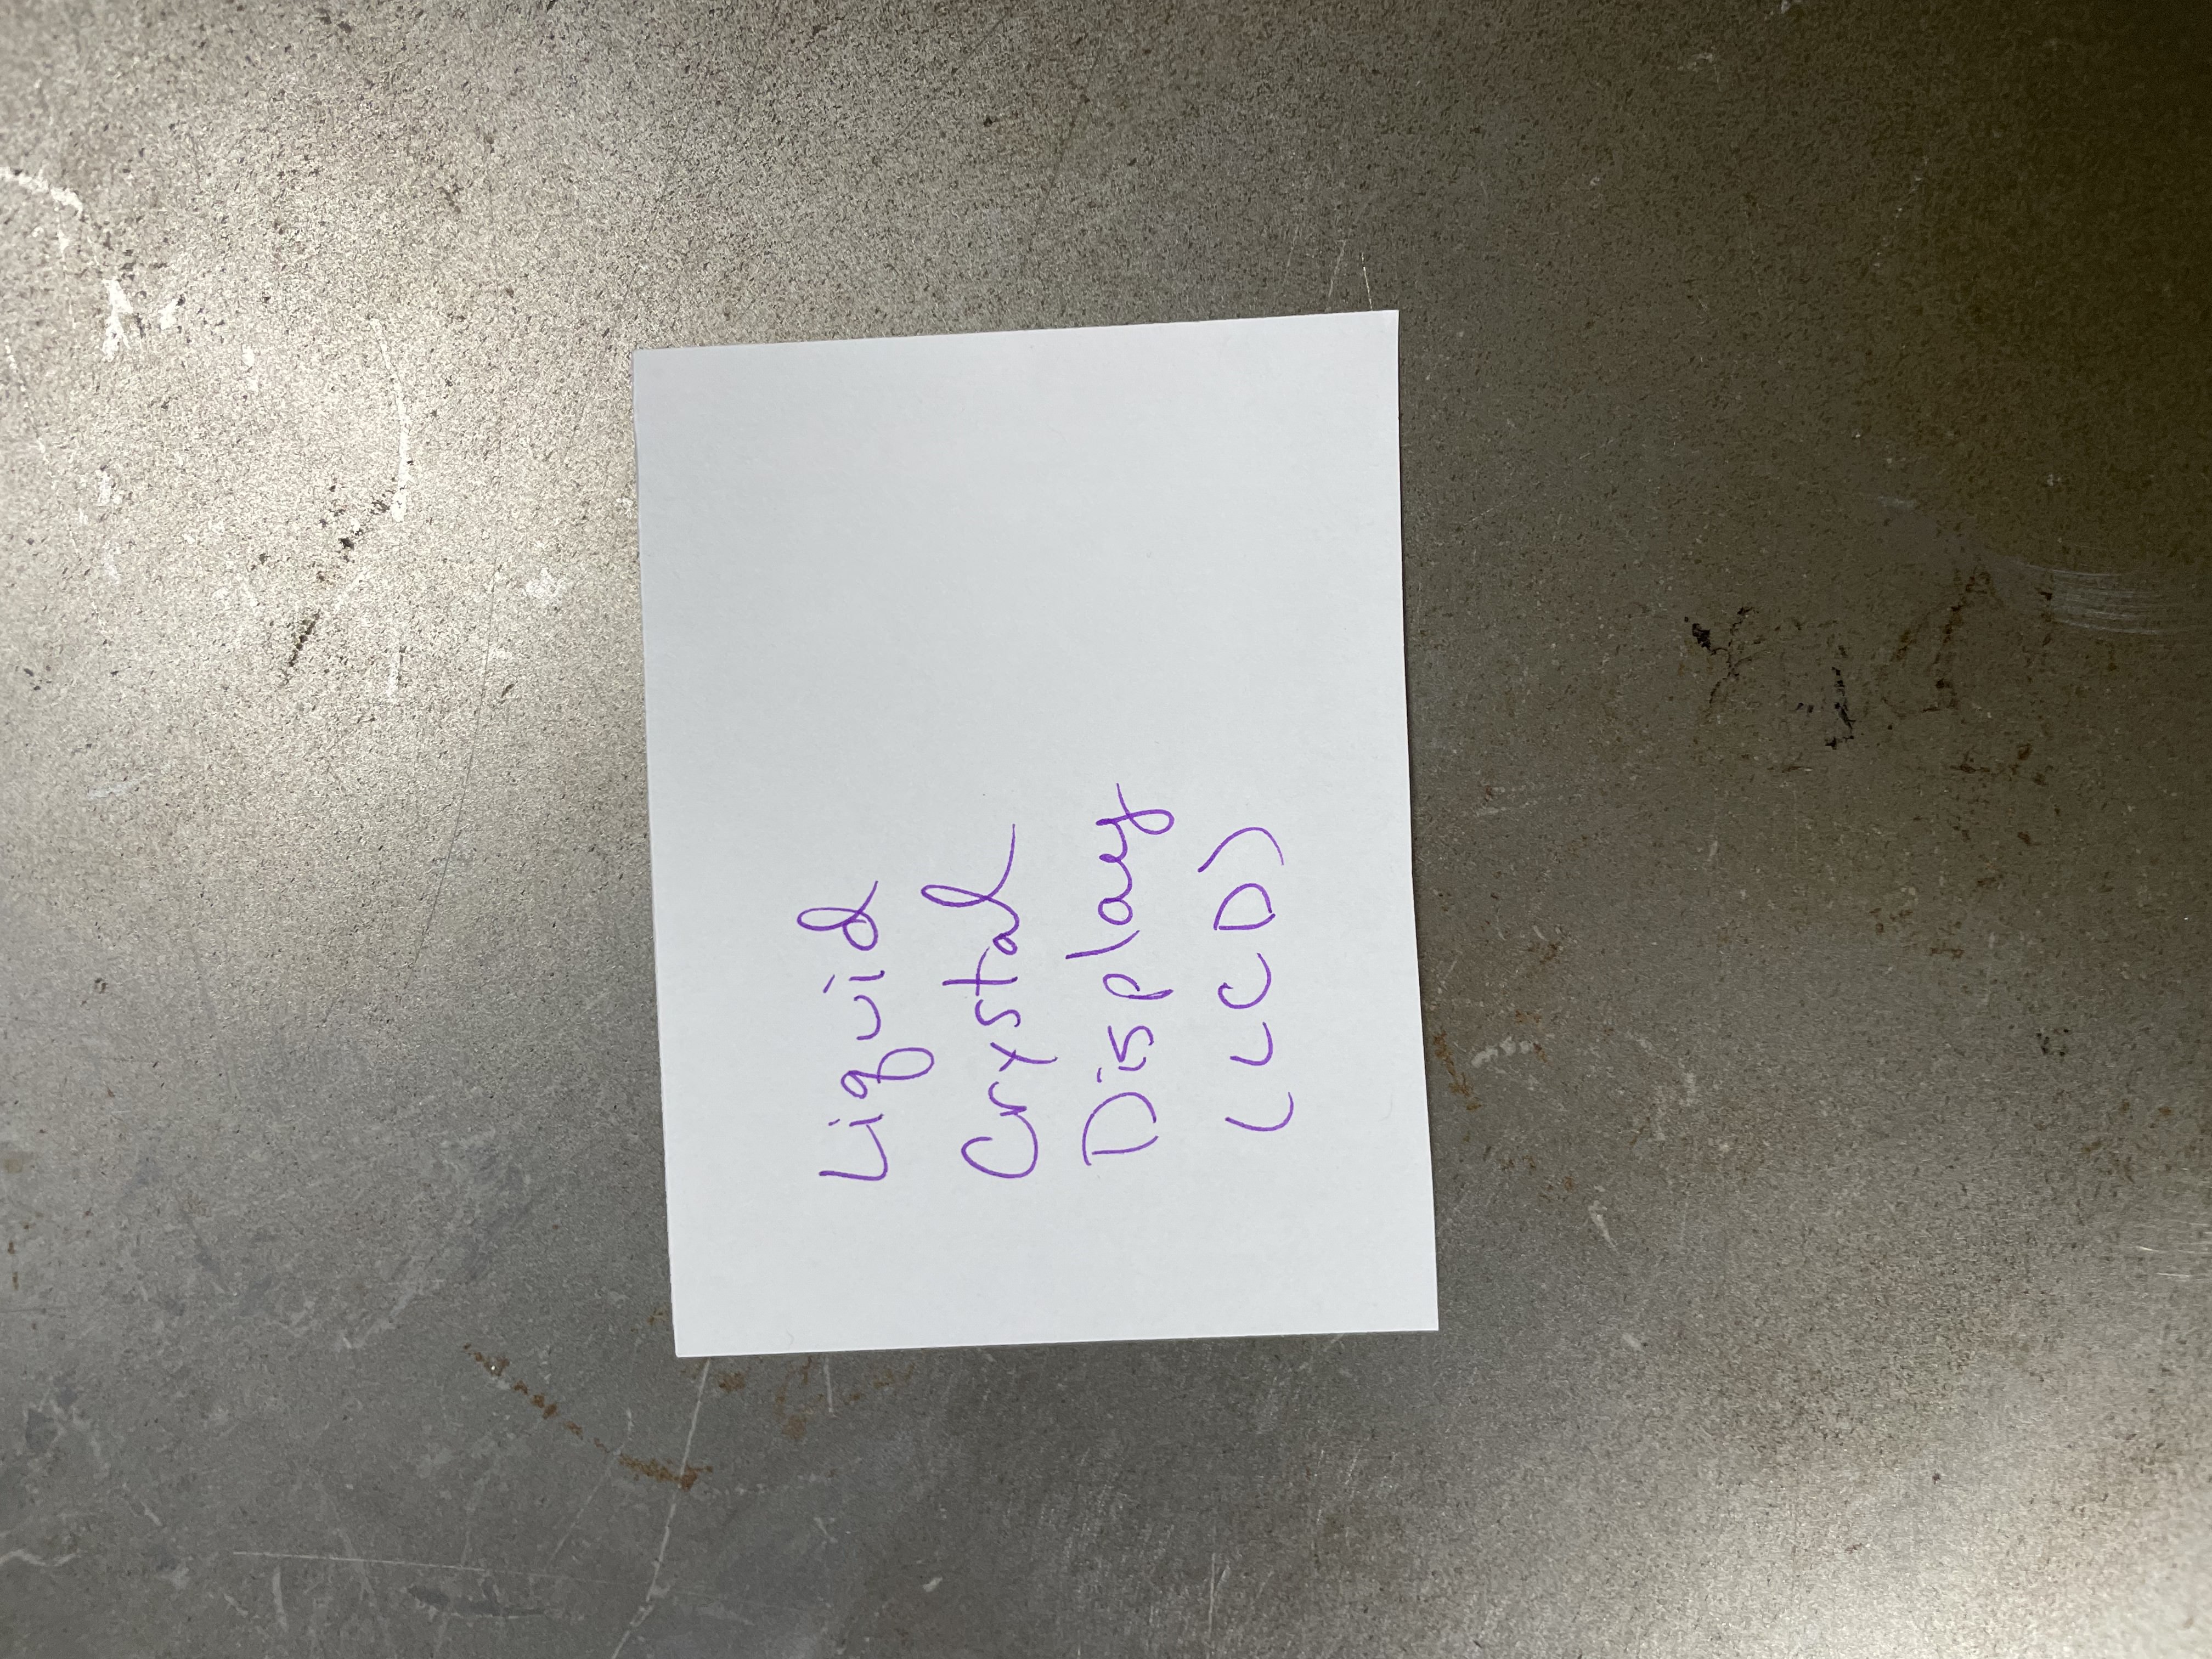 Liquid
Crystal
Display
(LCD)